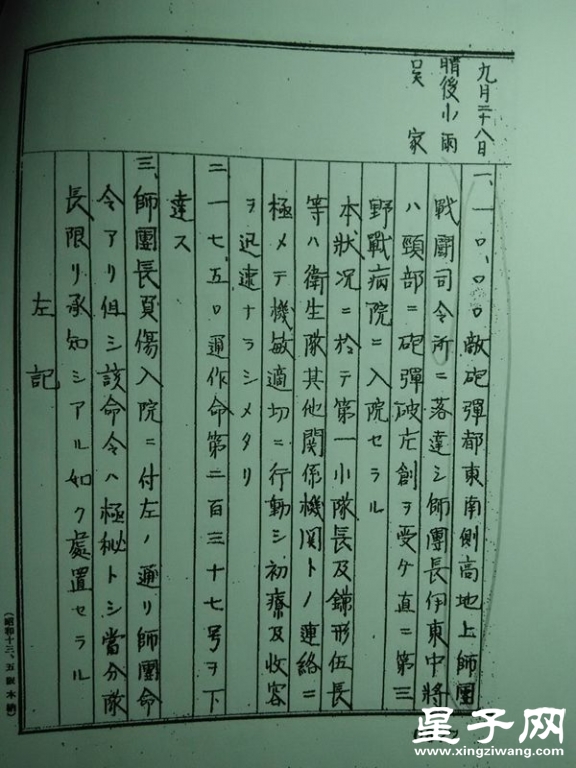 九月二十八日
晴後小雨
呉家
一、一〇、〇〇敵砲彈都東南側高地上師團
戰闘司令所ニ落達シ師團長伊東中將
ハ頸部ニ砲彈破片創ヲ受ケ直ニ第三
野戰病院ニ入院セラル
本狀况ニ於テ第一小隊長及錦形伍長
等ハ衛生隊其他関係機関トノ連絡ニ
極メテ機敏適切ニ行動シ初療及收容
ヲ迅速ナラシメタリ
二一七五〇通作命第二百三十七号ヲ下
達ス
三、師團長負傷入院ニ付左ノ通リ師團命
令アリ但シ該命令ハ極秘トシ當分隊
長限リ承知シアル如ク處置セラル
左記
(昭和十三、五
星子网
www.xingziwang.com